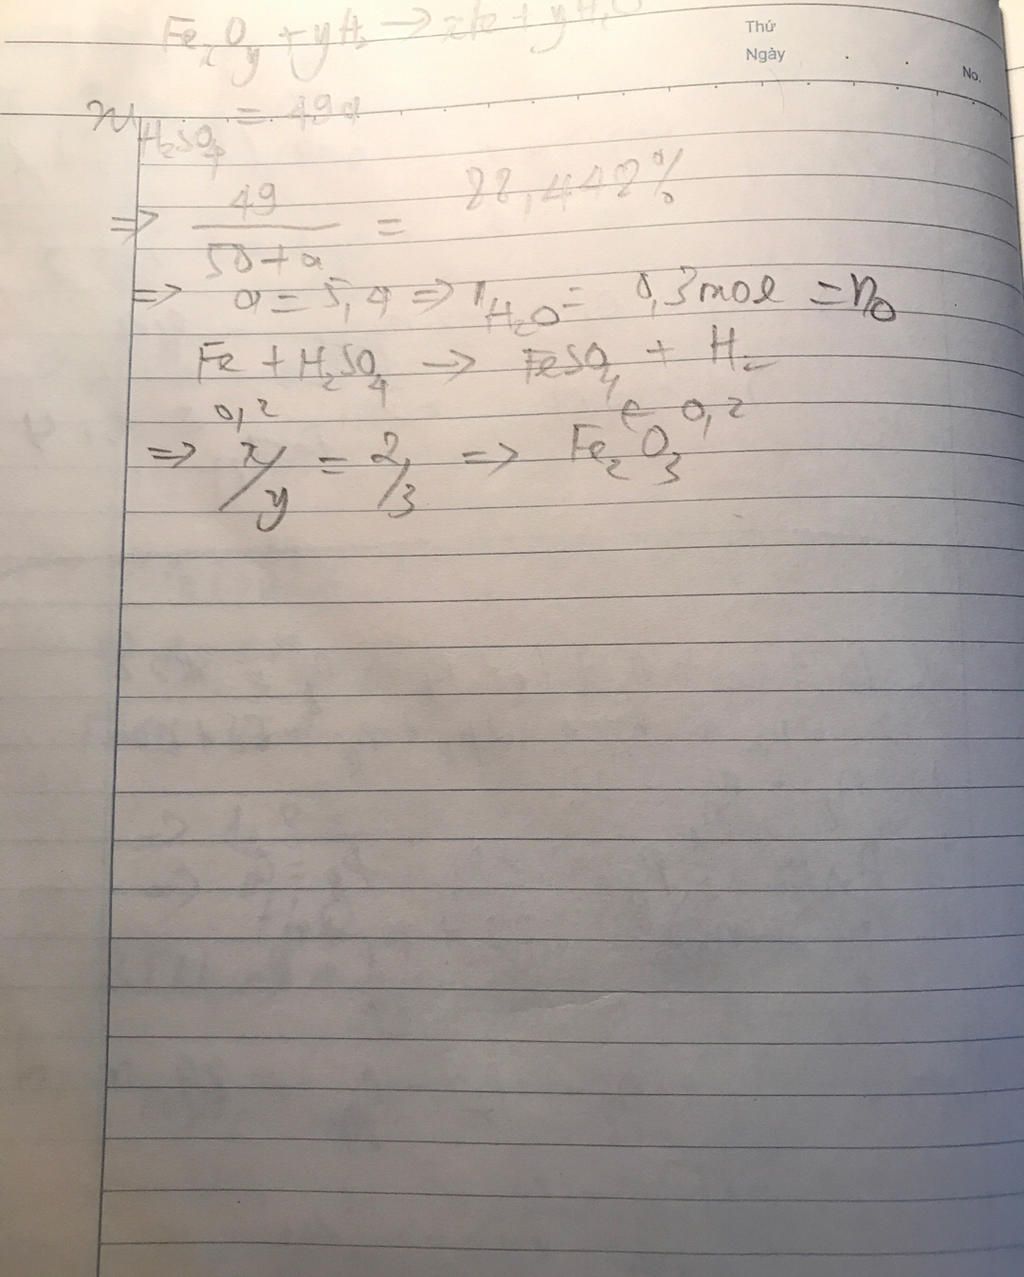 Fe_xO_y + yH_2 → xFe + yH_2O
Thứ
Ngày
No.
m_{H_2SO_4} = 49g
⇒ 49/(50+a) = 88,448%
⇒ a = 5,4 ⇒ n_{H_2O} = 0,3mol = n_O
Fe + H_2SO_4 → FeSO_4 + H_2
0,2 ← 0,2
⇒ x/y = 2/3 ⇒ Fe_2O_3